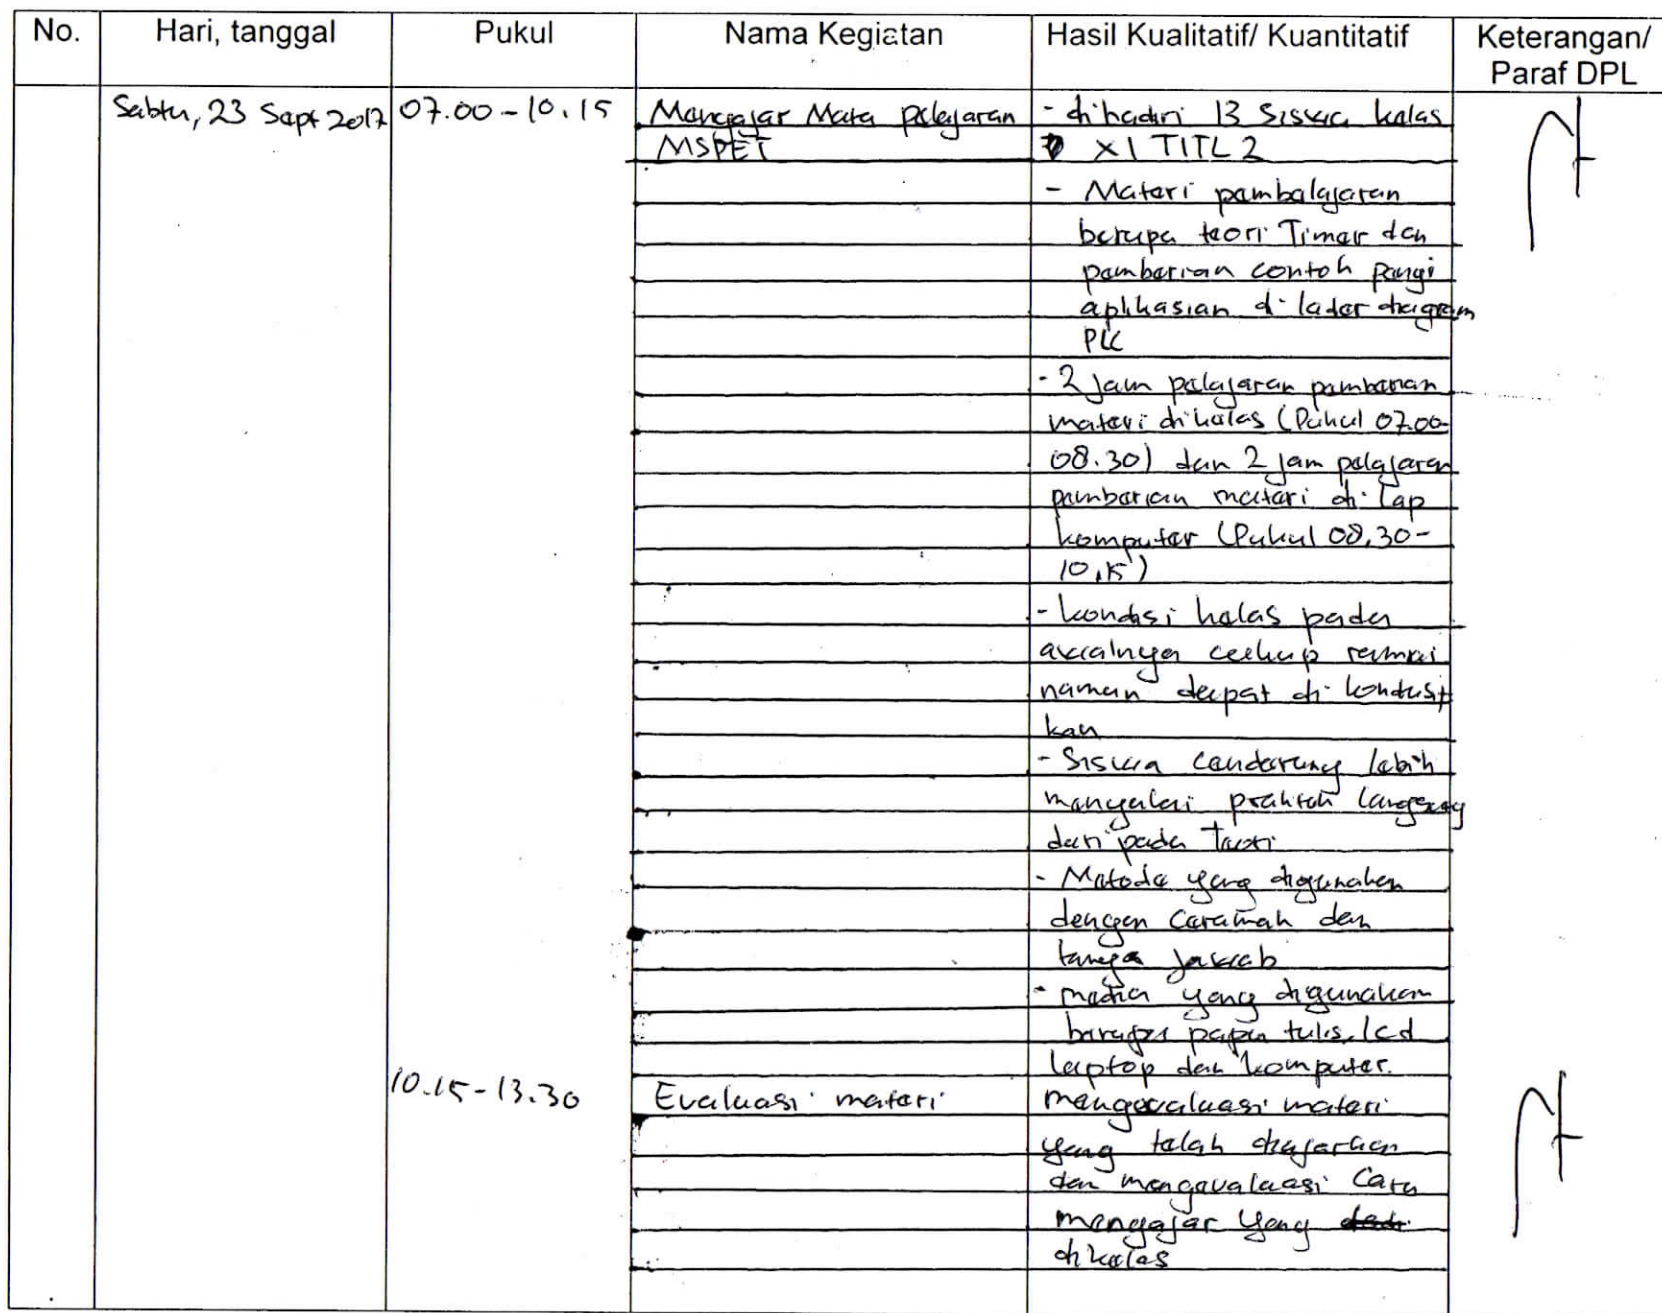 No. Hari, tanggal Pukul Nama Kegiatan Hasil Kualitatif/ Kuantitatif Keterangan/
Paraf DPL
Sabtu, 23 Sept 2017 07.00 - 10.15 Mengajar Mata pelajaran - dihadiri 13 Siswa kelas
MSPET XI TITL 2
- Materi pembelajaran
berupa teori Timer dan
pemberian contoh pengi
aplikasian di lader diagram
PLC
- 2 jam pelajaran pemberian
materi dikelas (Pukul 07.00-
08.30) dan 2 jam pelajaran
pemberian materi di Lap
komputer (Pukul 08.30-
10.15)
- kondisi kelas pada
awalnya cukup ramai
namun dapat di kondusif
kan
- Siswa cenderung lebih
menyukai praktek langsung
dari pada Teori
- Metode yang digunakan
dengan Ceramah dan
tanya jawab
- media yang digunakan
berupa papan tulis, lcd
laptop dan komputer.
10.15 - 13.30 Evaluasi materi mengevaluasi materi
yang telah diajarkan
dan mengevaluasi Cara
mengajar yang
dikelas